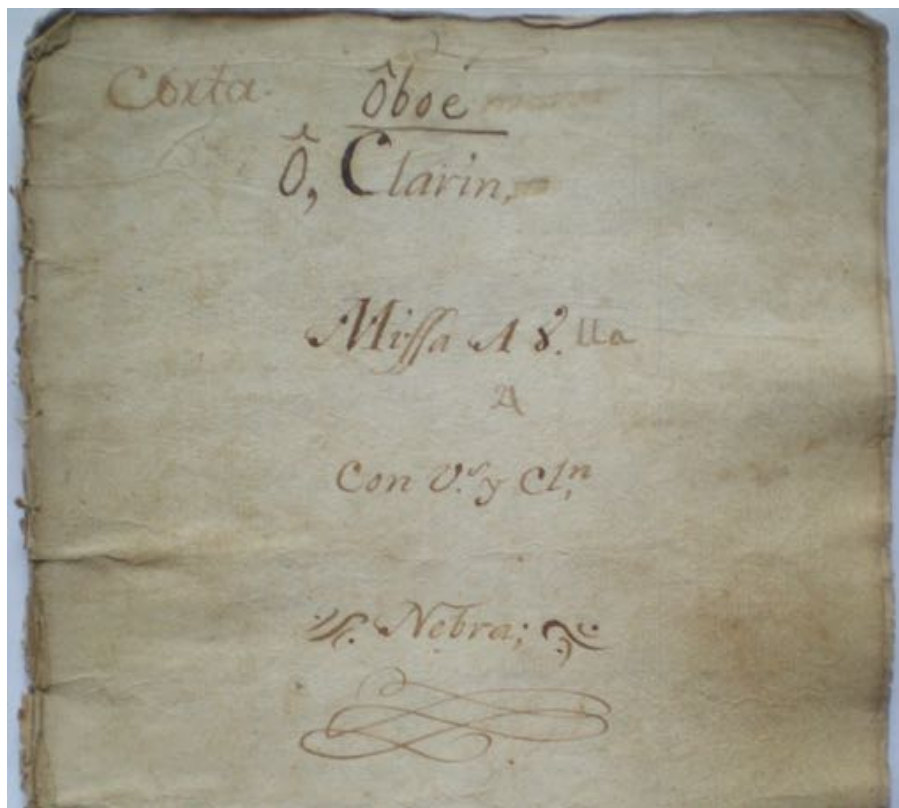 Corta. Ôboé
Ô, Clarin,
Missa A 8. lla
A
Con V.s y Cl,n
Nebra;